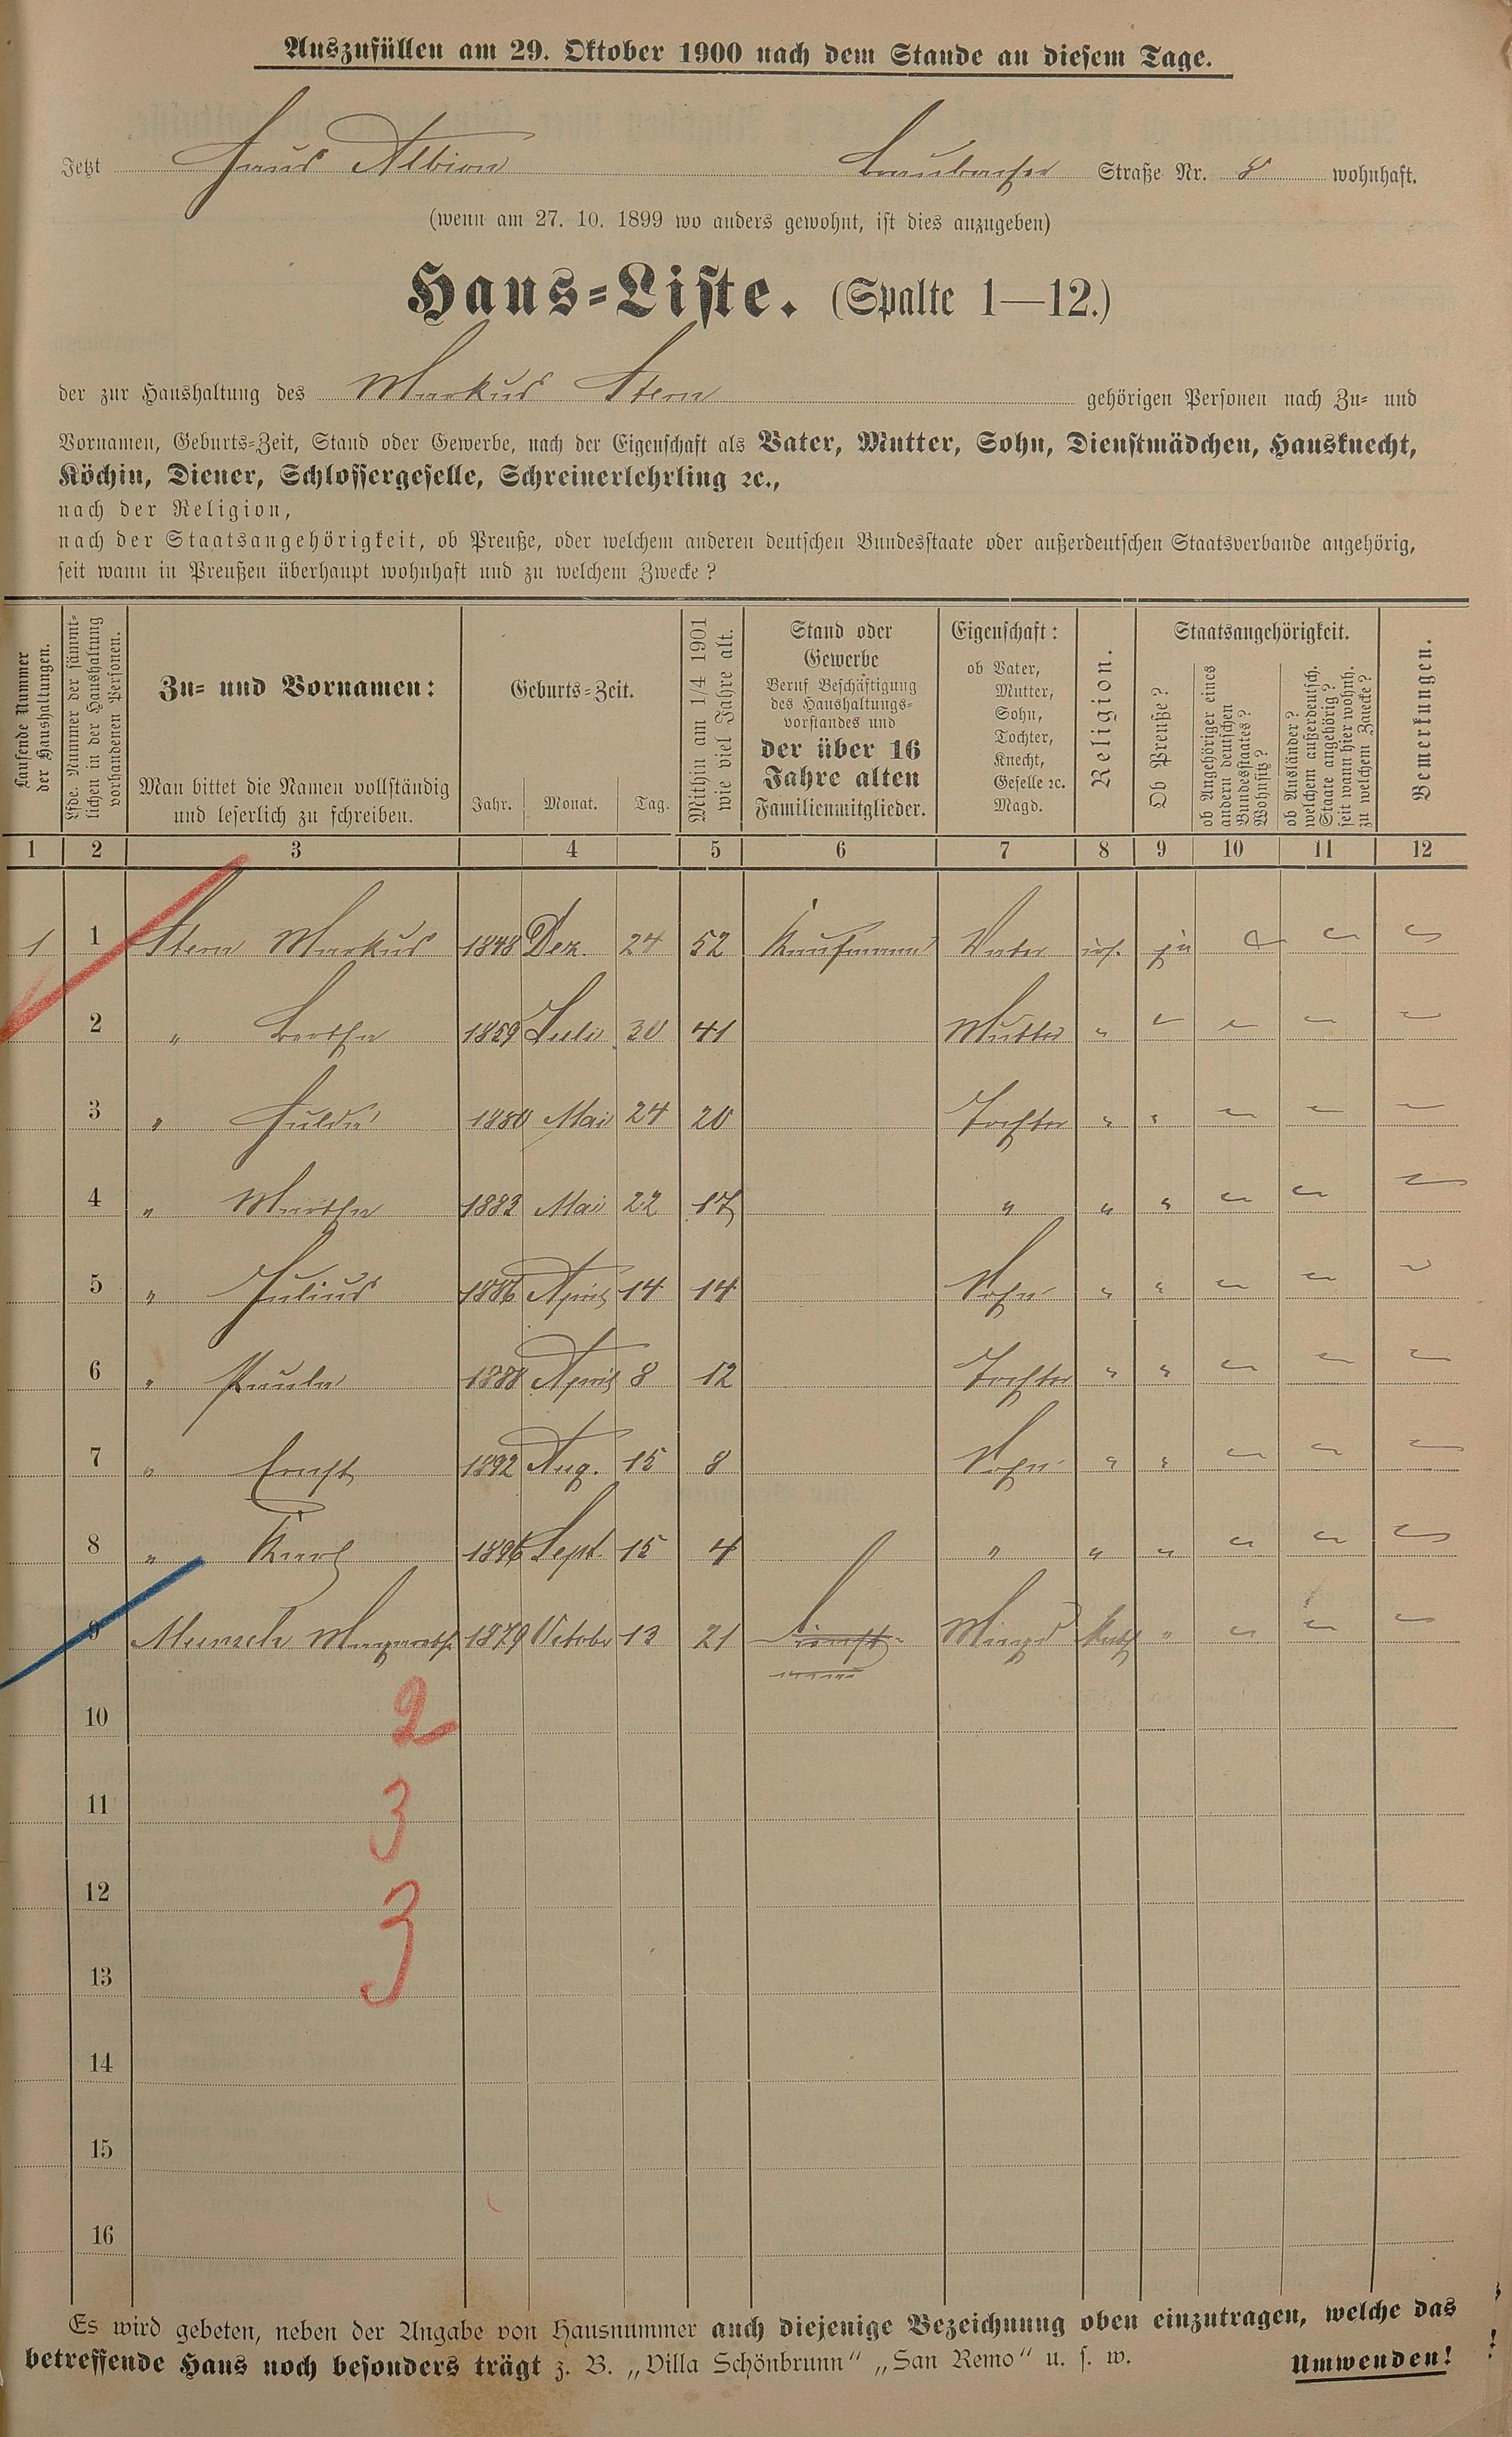 Auszufüllen am 29. Oktober 1900 nach dem Stande an diesem Tage.
Jetzt Haus Albion Braubacher Straße Nr. 8 wohnhaft.
(wenn am 27. 10. 1899 wo anders gewohnt, ist dies anzugeben)
Haus=Liste. (Spalte 1—12.)
der zur Haushaltung des Markus Stern gehörigen Personen nach Zu= und
Vornamen, Geburts=Zeit, Stand oder Gewerbe, nach der Eigenschaft als Vater, Mutter, Sohn, Dienstmädchen, Hausknecht,
Köchin, Diener, Schlossergeselle, Schreinerlehrling ꝛc.,
nach der Religion,
nach der Staatsangehörigkeit, ob Preuße, oder welchem anderen deutschen Bundesstaate oder außerdeutschen Staatsverbande angehörig,
seit wann in Preußen überhaupt wohnhaft und zu welchem Zwecke?
Laufende Nummer
der Haushaltungen.
Lfde. Nummer der sämmt=
lichen in der Haushaltung
vorhandenen Personen.
Zu= und Vornamen:
Man bittet die Namen vollständig
und leserlich zu schreiben.
Geburts=Zeit.
Jahr. Monat. Tag.
Mithin am 1/4 1901
wie viel Jahre alt.
Stand oder
Gewerbe
Beruf Beschäftigung
des Haushaltungs=
vorstandes und
der über 16
Jahre alten
Familienmitglieder.
Eigenschaft:
ob Vater,
Mutter,
Sohn,
Tochter,
Knecht,
Geselle ꝛc.
Magd.
Religion.
Staatsangehörigkeit.
Ob Preuße?
ob Angehöriger eines
andern deutschen
Bundesstaates?
Wohnsitz?
ob Ausländer?
welchem außerdeutsch.
Staate angehörig?
seit wann hier wohnh.
zu welchem Zwecke?
Bemerkungen.
1 2 3 4 5 6 7 8 9 10 11 12
1 1 Stern Markus 1848 Dez. 24 52 Kaufmann Vater isr. ja
2 " Bertha 1859 Juli 30 41 Mutter "
3 " Hulda 1880 Mai 24 20 Tochter " "
4 " Martha 1883 Mai 22 17 " " "
5 " Julius 1886 April 14 14 Sohn " "
6 " Paula 1888 April 8 12 Tochter " "
7 " Ernst 1892 Aug. 15 8 Sohn " "
8 " Karl 1896 Sept. 15 4 " " "
9 Munsch Margareth 1879 October 13 21 Magd kath "
10 2
11 3
12 3
13
14
15
16
Es wird gebeten, neben der Angabe von Hausnummer auch diejenige Bezeichnung oben einzutragen, welche das
betreffende Haus noch besonders trägt z. B. „Villa Schönbrunn“ „San Remo“ u. s. w. Umwenden!